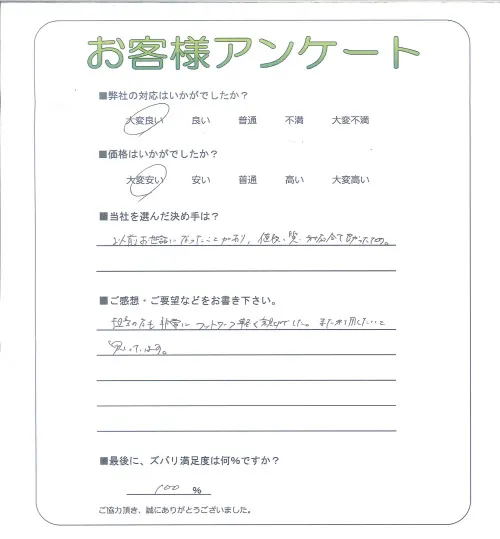 お客様アンケート
■弊社の対応はいかがでしたか？
大変良い 良い 普通 不満 大変不満
■価格はいかがでしたか？
大変安い 安い 普通 高い 大変高い
■当社を選んだ決め手は？
以前お世話になったことがあり、
■ご感想・ご要望などをお書き下さい。
担当の方も非常にフットワーク軽く親切でした。また利用したいと
思っています。
■最後に、ズバリ満足度は何％ですか？
100 %
ご協力頂き、誠にありがとうございました。